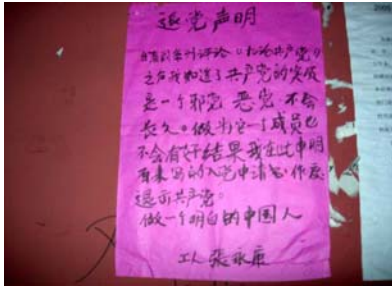 退党声明
自看到九评评论《九评共产党》
之后我知道了共产党的实质
是一个邪党 恶党 不会
长久。做为它一个成员也
不会有好结果 我在此申明
原来写的入党申请书作废
退出共产党。
做一个明白的中国人
工人 张永康